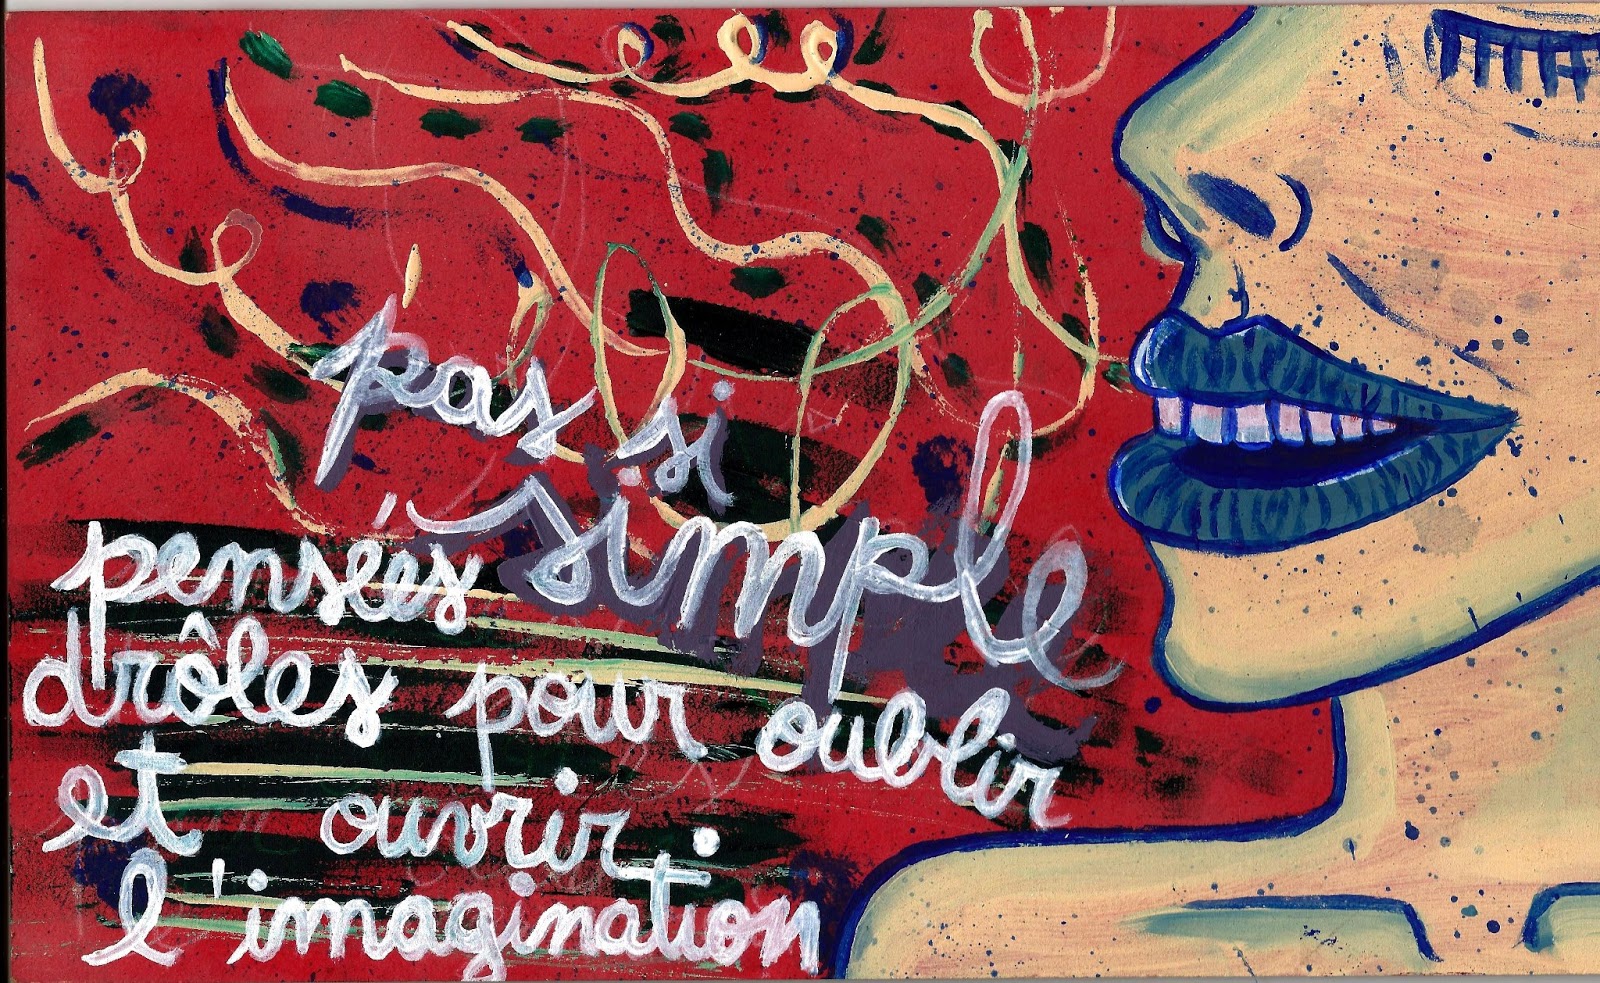 pas si
simple
pensées
drôles pour oublir
et ouvrir
l'imagination